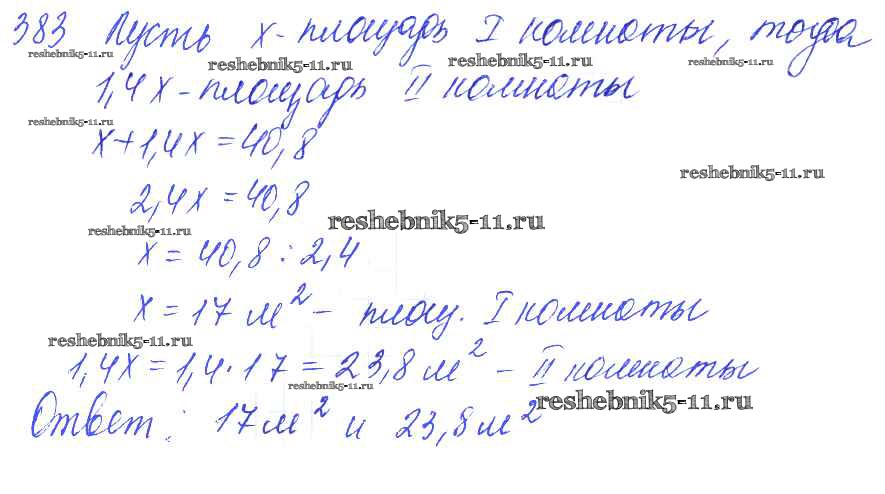 383 Пусть x - площадь I комнаты, тогда
reshebnik5-11.ru reshebnik5-11.ru reshebnik5-11.ru reshebnik5-11.ru
1,4x - площадь II комнаты
reshebnik5-11.ru
x+1,4x=40,8
reshebnik5-11.ru
2,4x=40,8
reshebnik5-11.ru reshebnik5-11.ru
x=40,8:2,4
x=17 м² - площ. I комнаты
reshebnik5-11.ru
1,4x=1,4·17=23,8 м² - II комнаты
reshebnik5-11.ru reshebnik5-11.ru
Ответ: 17 м² и 23,8 м²